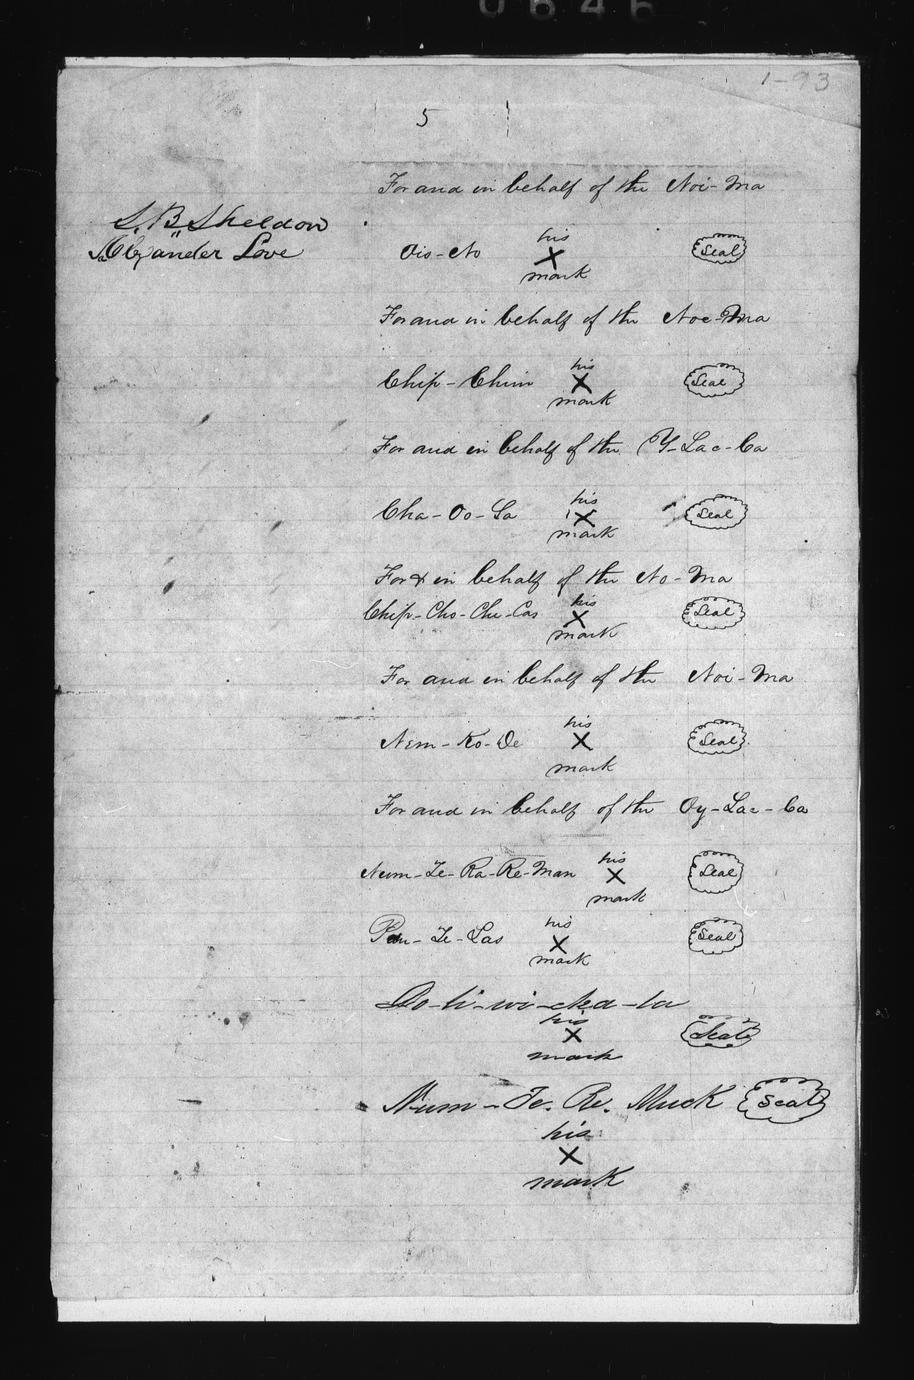 0646
1-93
5
For and in behalf of the Noi-Ma
S. B. Sheldon
Alexander Love
his
Ois-No X Seal
mark
For and in behalf of the Noc-Ma
his
Chip-Chim X Seal
mark
For and in behalf of the Y-Lac-Ca
his
Cha-Oo-Ga X Seal
mark
For & in behalf of the No-Ma
his
Chip-Cho-Che-Cas X Seal
mark
For and in behalf of the Noi-Ma
his
Nem-Ko-De X Seal
mark
For and in behalf of the Oy-Lac-Ca
his
Num-Te-Ra-Re-Man X Seal
mark
his
Te-Las X Seal
mark
his
X Seal
mark
Num-Te. Re. Muck Seal
his
X
mark